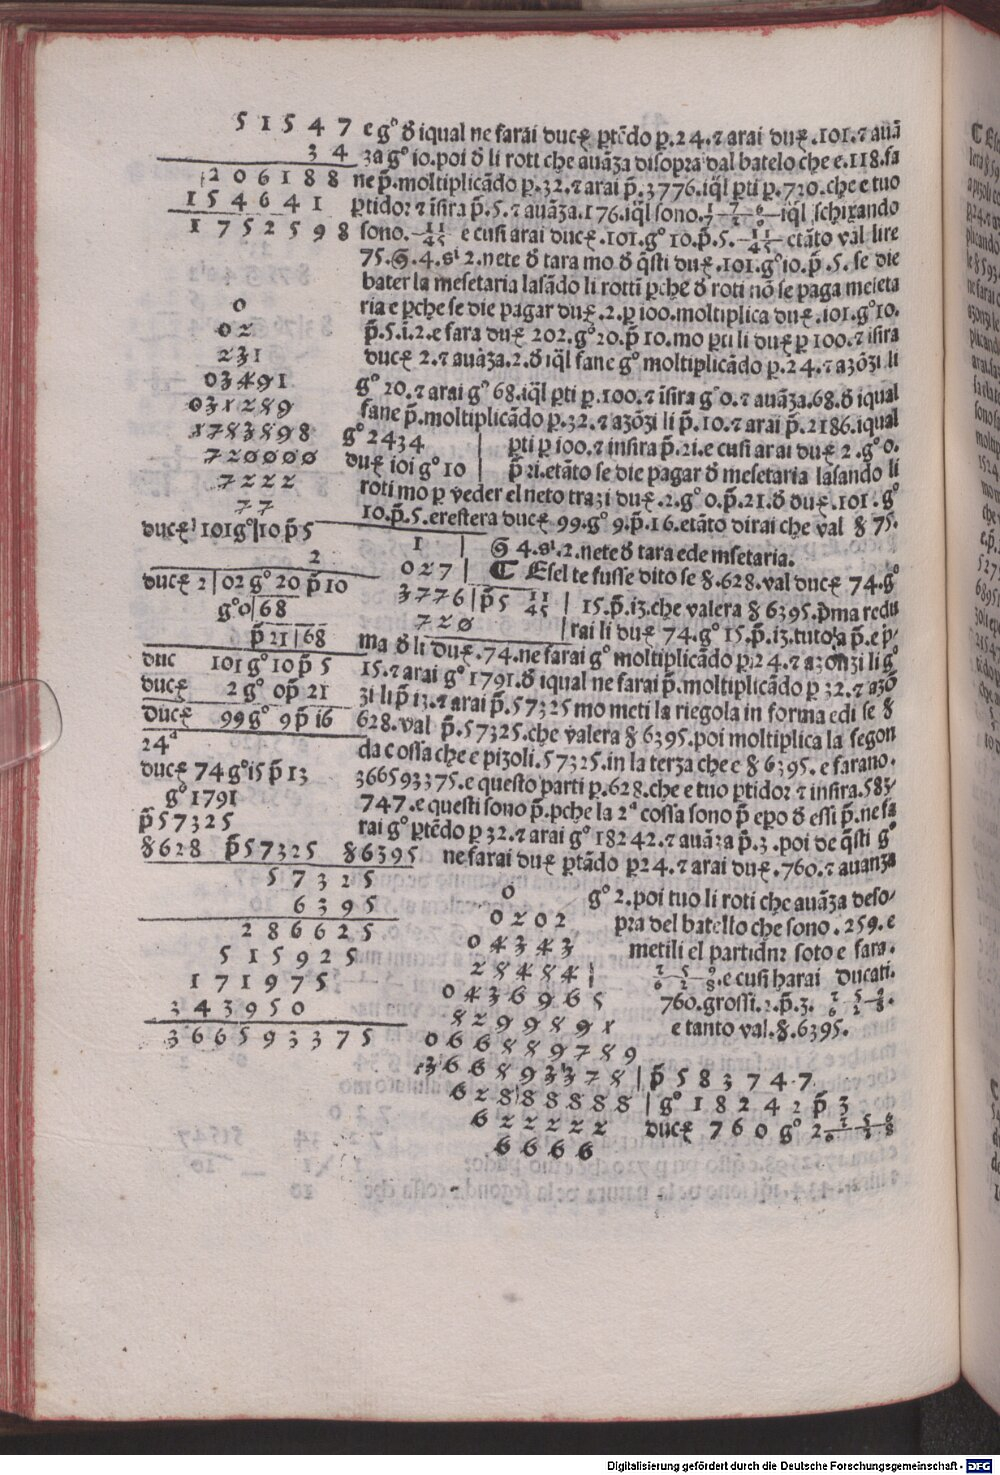 5 1 5 4 7
3 4
2 0 6 1 8 8
1 5 4 6 4 1
1 7 5 2 5 9 8
e gº d̄ iqual ne farai ducꝝ ꝑtẽdo ꝑ.24.⁊ arai duꝝ.101.⁊ auãza
za gº 10.poi d̄ li rotti che auãza disopra dal batelo che e.118.fa
ne p̃.moltiplicãdo ꝑ.32.⁊ arai p̃.3776.iq̃l ꝑti ꝑ.720.che e tuo
ꝑtidor ⁊ ĩsira p̃.5.⁊ auãza.176.iq̃l sono. iq̃l schixando
sono. 11/45 e cusi arai ducꝝ.101.gº 10.p̃.5. 11/45 etãto val lire
75.S̃.4.s¹ 2.nete d̄ tara mo d̄ q̃sti duꝝ.101.gº10.p̃.5.se die
bater la mesetaria lasãdo li rotti ꝑche d̄ roti nõ se paga meseta
ria e ꝑche se die pagar duꝝ.2.ꝑ 100.moltiplica duꝝ.101.gº10.
p̃.5.ĩ.2.e fara duꝝ 202.gº20.p̃10.mo ꝑti li duꝝ ꝑ 100.⁊ isira
ducꝝ 2.⁊ auãza.2.d̄ iq̃l fane gº moltiplicãdo ꝑ.24.⁊ azõzi li
gº 20.⁊ arai gº 68.iq̃l ꝑti ꝑ.100.⁊ ĩsira gº0.⁊ auãza.68.d̄ iqual
fane p̃.moltiplicãdo ꝑ.32.⁊ azõzi li p̃.10.⁊ arai p̃.2186.iqual
ꝑti ꝑ 100.⁊ insira p̃.21.e cusi arai duꝝ 2.gº 0.
p̃ 21.etãto se die pagar d̄ mesetaria lasando li
roti mo ꝑ veder el neto trazi duꝝ.2.gº 0.p̃.21.d̄ duꝝ.101.gº
10.p̃.5.erestera ducꝝ 99.gº 9.p̃.16.etãto dirai che val ꝸ 75.
S̃ 4.s¹.2.nete d̄ tara ede msetaria.
0
0 2
2 3 1
0 3 4 9 1
0 3 1 2 8 9
1 7 8 3 8 9 8
7 2 0 0 0 0
7 2 2 2
7 7
gº 2434
duꝝ 101 gº 10
ducꝝ 101gº|10 p̃ 5
2
ducꝝ 2|02 gº 20 p̃10
gº0|68
p̃ 21|68
duc 101 gº10 p̃ 5
ducꝝ 2 gº 0p̃ 21
ducꝝ 99 gº 9 p̃ 16
24ª
ducꝝ 74 gº15 p̃ 13
gº 1791
p̃57325
ꝸ628 p̃57325 ꝸ6395
1
0 2 7
3 7 7 6 | p̃5 11/45
7 2 0
C Esel te fusse dito se ꝸ.628.val ducꝝ 74.gº
15.p̃.13.che valera ꝸ 6395.p̃ma redu
rai li duꝝ 74.gº 15.p̃.13.tuto a p̃.e p̃-
ma d̄ li duꝝ.74.ne farai gº moltiplicãdo ꝑ.24.⁊ azonzi li gº
15.⁊ arai gº 1791.d̄ iqual ne farai p̃.moltiplicãdo ꝑ 32.⁊ azõ
zi li p̃ 13.⁊ arai p̃.57325 mo meti la riegola in forma edi se ꝸ
628.val p̃.57325.che valera ꝸ 6395.poi moltiplica la segon
da cossa che e pizoli.57325.in la terza che e ꝸ 6395.e farano.
366593375.e questo parti ꝑ.628.che e tuo ꝑtidor ⁊ insira.583-
747.e questi sono p̃.ꝑche la 2ª cossa sono p̃ eꝑo d̄ essi p̃.ne fa
rai gº ꝑtẽdo ꝑ 32.⁊ arai gº 18242.⁊ auãza p̃.3.poi de q̃sti gº
ne farai duꝝ ꝑtãdo ꝑ24.⁊ arai duꝝ.760.⁊ auanza
gº 2.poi tuo li roti che auãza deso-
pra del batello che sono.259.e
metili el partidor soto e fara.
.e cusi harai ducati.
760.grossi.2.p̃.3.
e tanto val.ꝸ.6395.
5 7 3 2 5
6 3 9 5
2 8 6 6 2 5
5 1 5 9 2 5
1 7 1 9 7 5
3 4 3 9 5 0
3 6 6 5 9 3 3 7 5
0
0 2 0 2
0 4 3 4 3
2 8 4 8 4
0 4 3 6 9 6 5
8 2 9 9 8 9 1
0 6 6 8 8 9 7 8 9
3 6 6 8 9 3 3 7 8 | p̃ 5 8 3 7 4 7
6 2 8 8 8 8 8 8 | gº 1 8 2 4 2 p̃ 3
6 2 2 2 2 2 ducꝝ 7 6 0 gº 2
6 6 6 6
Digitalisierung gefördert durch die Deutsche Forschungsgemeinschaft - DFG